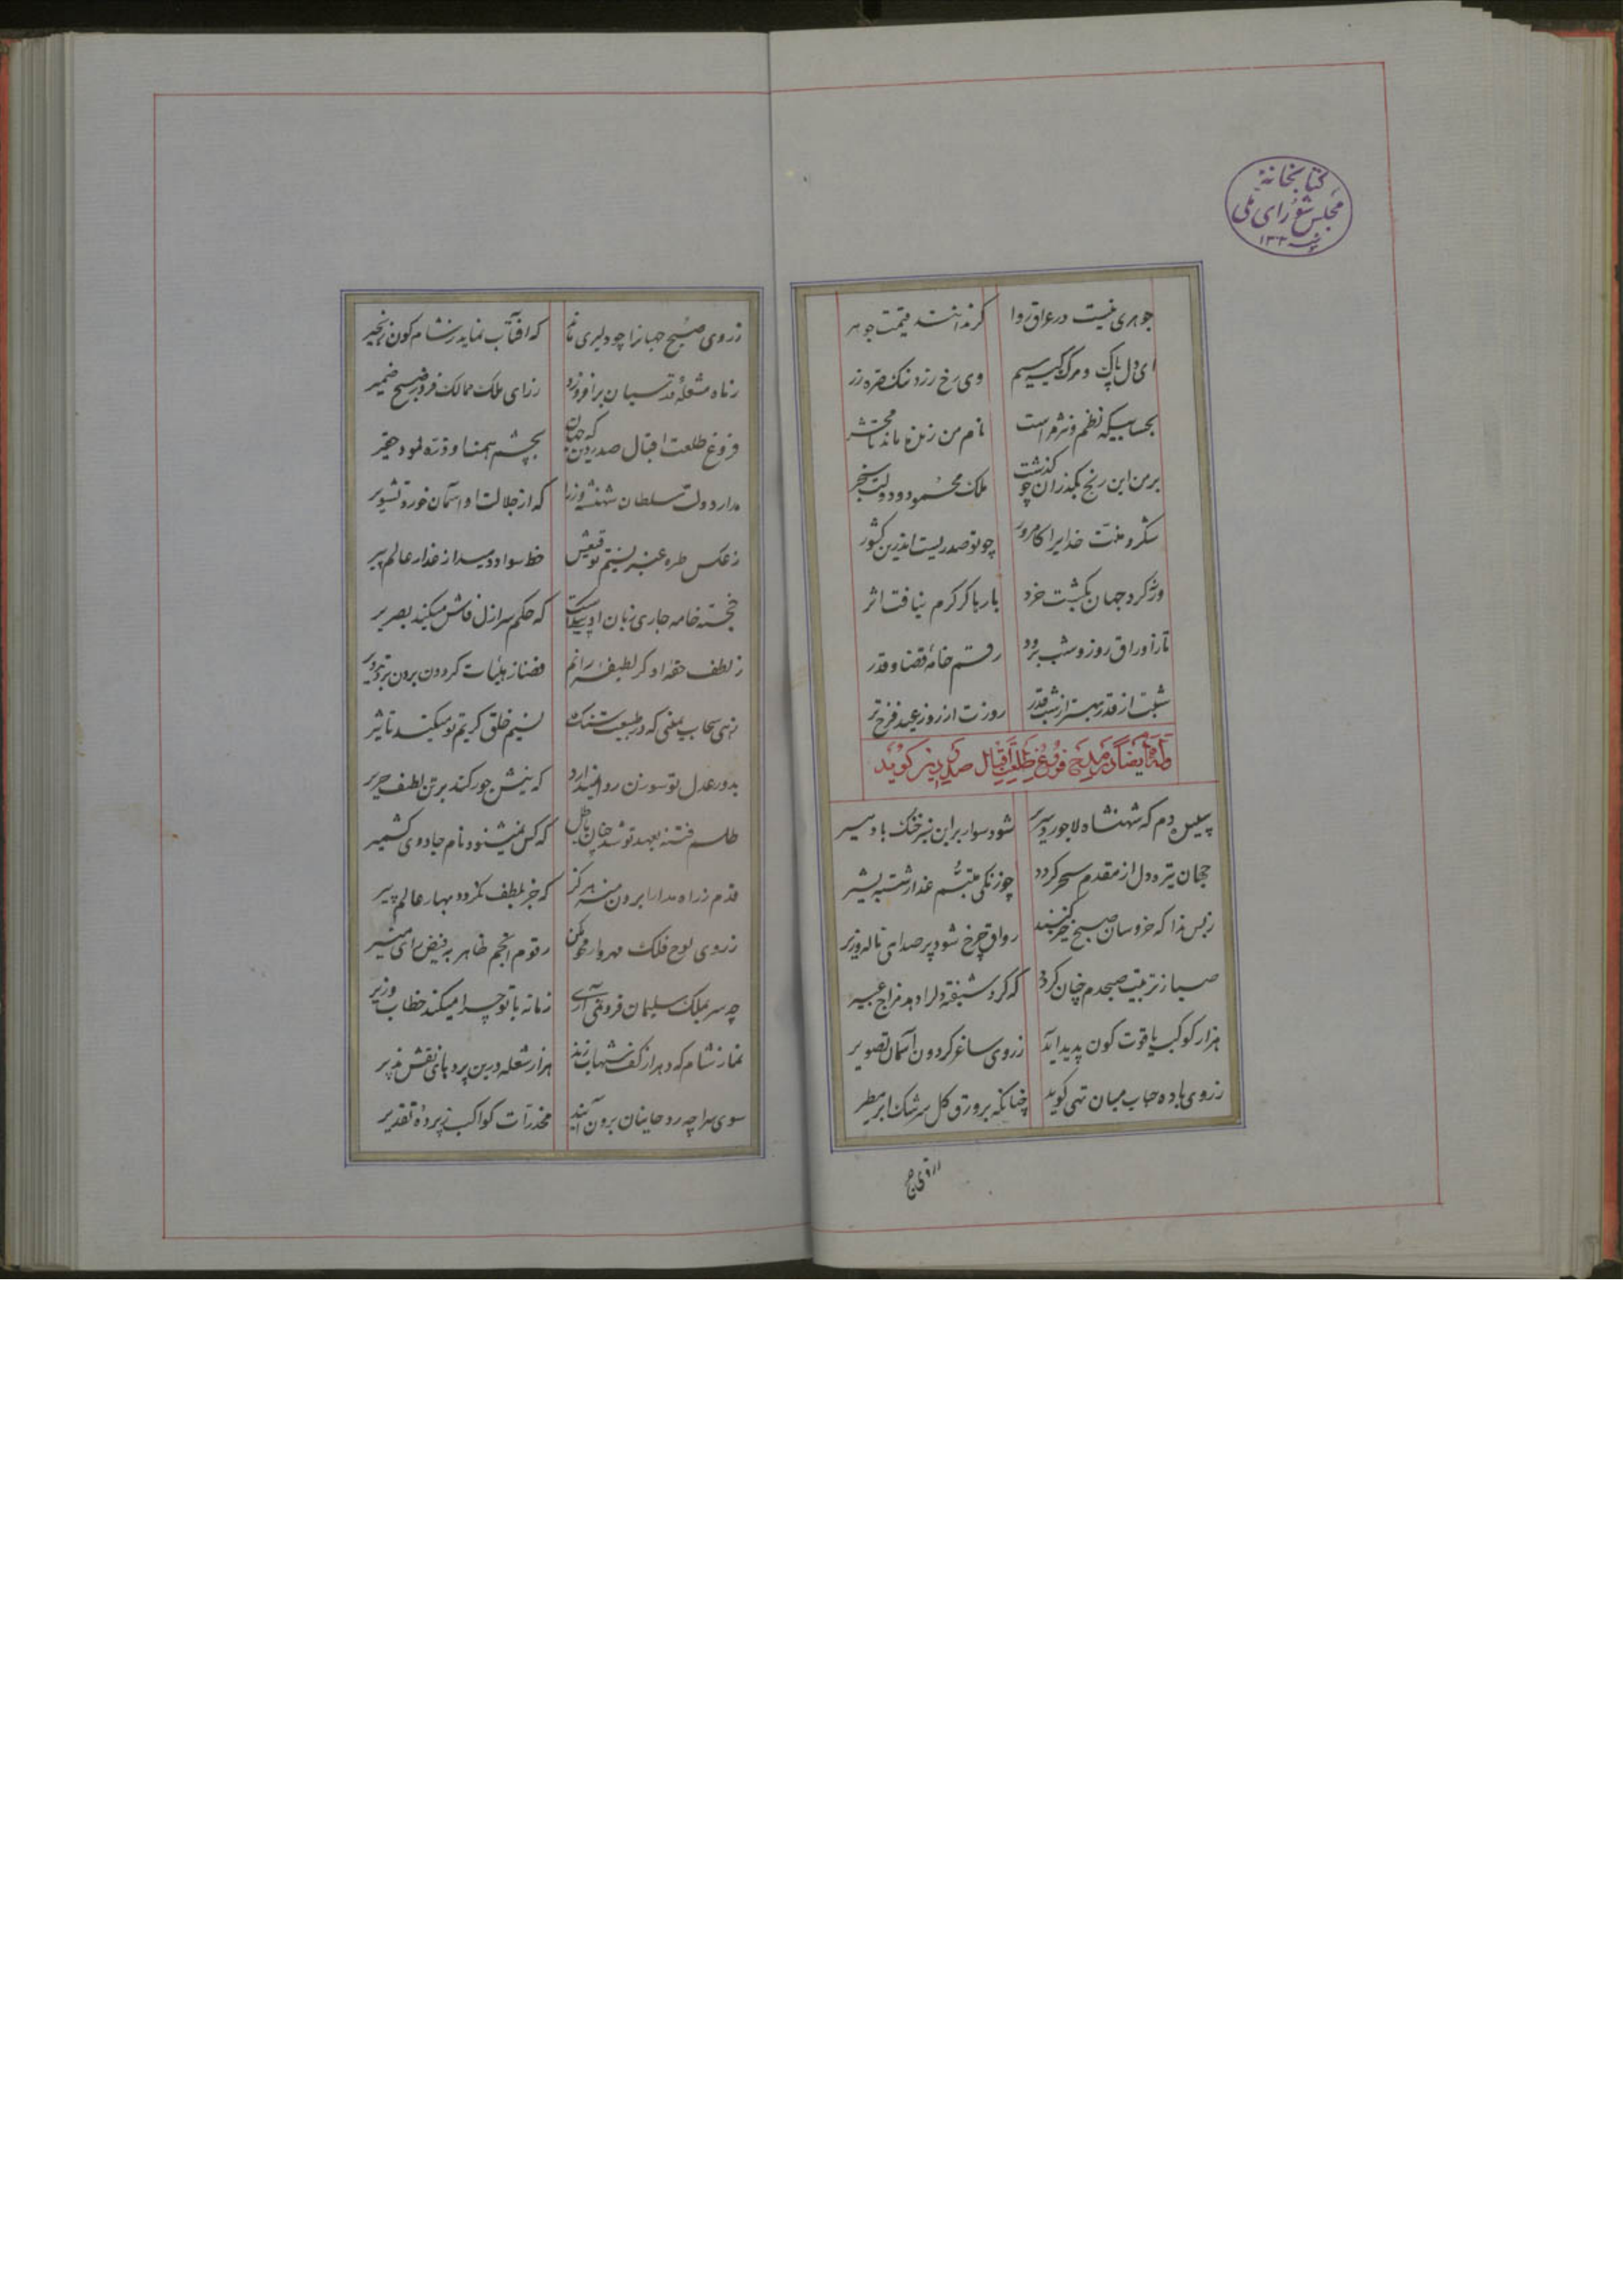 کتابخانهٔ
مجلس شورای ملی
جوهری نیست در عراق روا کر ندانند قیمت جوهر
ای دل پاک و مرک کیسه سیم وی رخ زرد نک صره زر
نام من زنده ماند تا محشر
بر من این رنج بگذران چو گذشت ملک محمود و دولت سنجر
شکر و منت خدایرا کامروز چو تو صدریست اندرین کشور
ورنه کرد جهان بکشت خرد بارها کز کرم نیافت اثر
تا ز اوراق روز و شب نرود رقم خامهٔ قضا و قدر
شبت از قدر بهتر از شب قدر روزت از روز عید فرخ‌تر
وله ایضا در مدح فروغ طلعت اقبال صدر دین کوید
سپیده‌دم که شهنشاه لاجورد سریر شود سوار برین سبز خنک باد مسیر
جهان تیره‌دل از مقدم سحر کردد چو زنکی متبسم عذار شسته بشیر
ز بس ندا که خروسان صبح خیز کنند رواق چرخ شود پر صدای ناله و زیر
صبا ز تربیت صبحدم چنان کردد که کرد شیفته دلرا دهد مزاج عبیر
هزار کوکب یاقوت کون پدید آید ز روی ساغر کردون آسمان تصویر
ز روی باده حباب میان تهی کوید چنانکه بر ورق کل سرشک ابر مطیر
ز روی صبح
ز روی صبح جهانرا چو دلبری که آفتاب نماید ز شام کون زنجیر
ز ماه مشعلهٔ قدسیان برافروزد ز رای ملک ممالک فروز صبح ضمیر
فروغ طلعت اقبال صدر دین که جهان بچشم همت او ذره بود حقیر
مدار دولت سلطان شهنشه وزرا که از جلالت او آسمان خورد تشویر
ز عکس طره عنبر نسیم توقیعش خط سواد دمید از عذار عالم پیر
خجسته خامه جاری زبان او که حکم سر ازل فاش میکند بصریر
ز لطف حقه او کر لطیفه رانم قضا ز هیأت کردون برون برد تدویر
زهی سحاب بمعنی که در طبیعت سنک نسیم خلق کریم تو میکند تاثیر
بدور عدل تو سوزن روا نمیدارد که نیش جور کند بر تن لطیف حریر
طلسم فتنه بعهد تو شد چنان باطل که کس نمیشنود نام جادوی کشمیر
قدم ز راه مدارا برون منه هرگز که جز بلطف نکردد بهار عالم پیر
ز روی لوح فلک مهروار محو مکن رقوم انجم ظاهر به فیض رای منیر
چه سر بملک سلیمان فرو نمی آری زمانه با تو چرا میکند خطاب وزیر
نماز شام که دهر از کف شهاب زند هزار شعله درین پرده‌های نقش پذیر
سوی سراچه روحانیان برون آیند مخدرات کواکب ز پردهٔ تقدیر